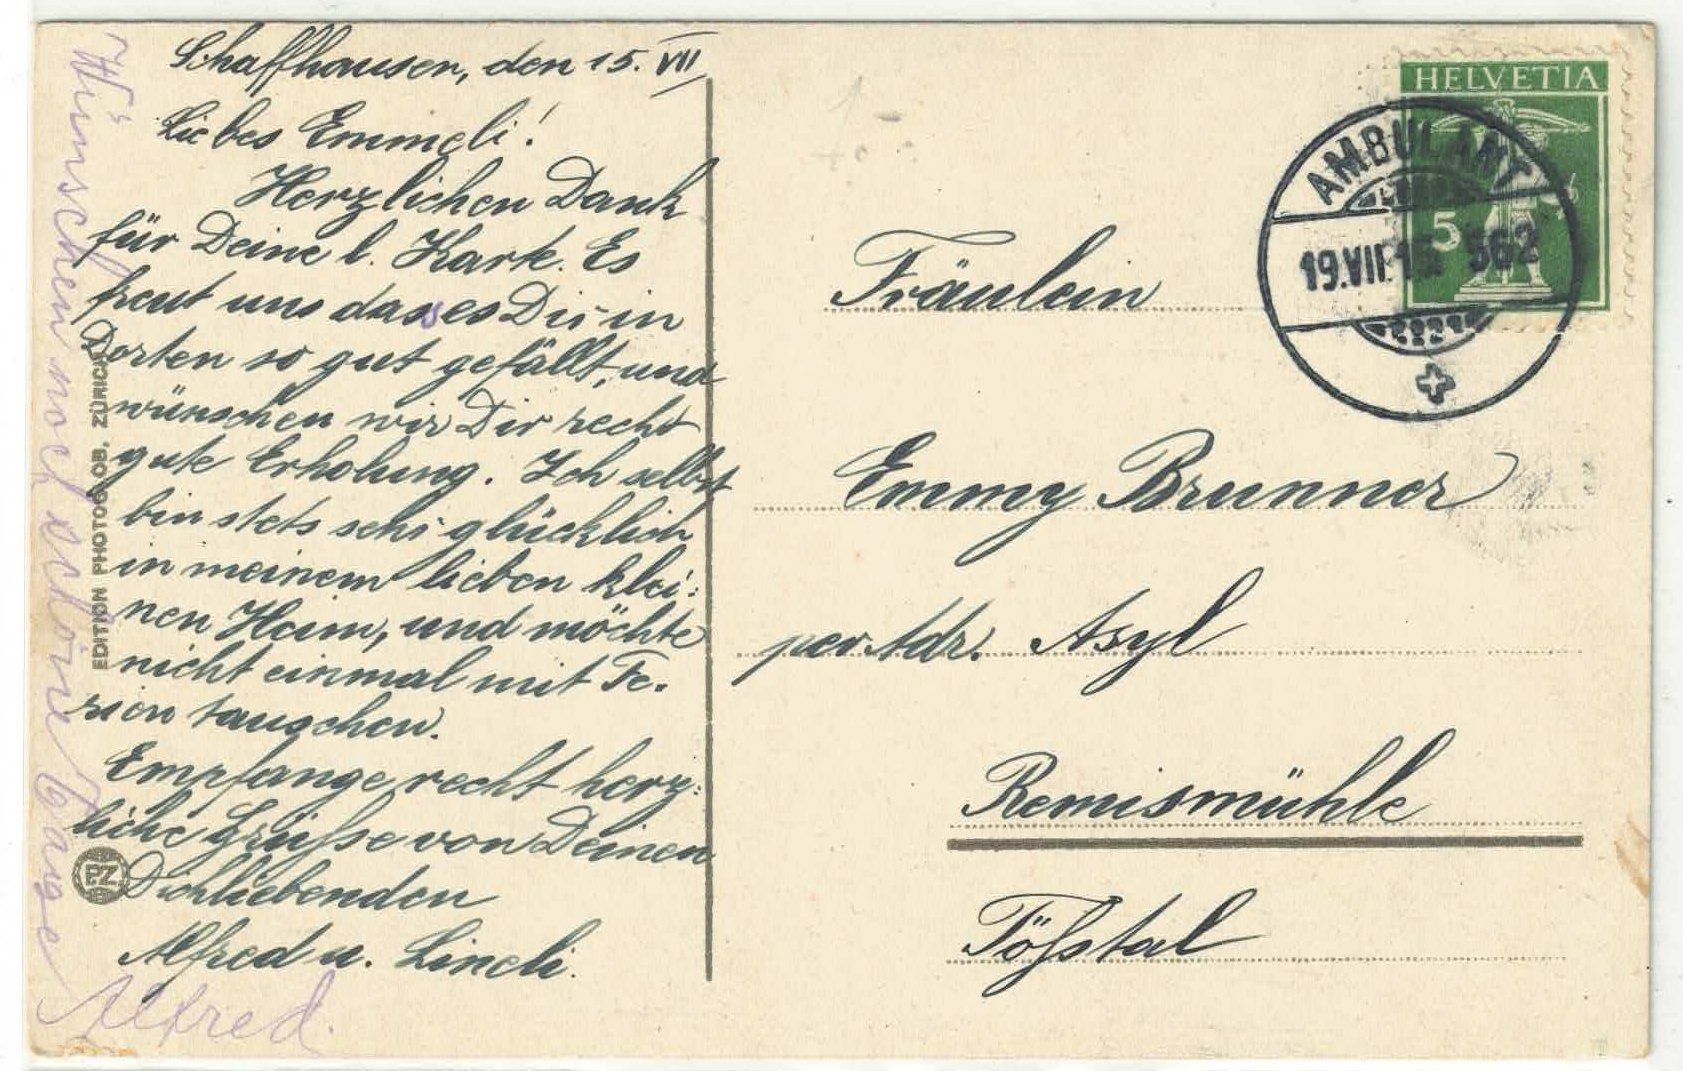 Schaffhausen, den 15. VII
Liebes Emmeli!
Herzlichen Dank
für Deine l. Karte. Es
freut uns dass es Dir in
Dorten so gut gefällt, und
wünschen wir Dir recht
gute Erholung. Ich selbst
bin stets sehr glücklich
in meinem lieben klei:
nen Heim, und möchte
nicht einmal mit Fe.
rien tauschen.
Empfange recht herz:
liche Grüsse von Deinen
Dichliebenden
Alfred u. Lineli.
Wünschen noch schöne Tage
Alfred.
EDITION PHOTOGLOB, ZÜRICH
PZ
HELVETIA
5
AMBULANT
19.VII.15 562
Fräulein
Emmy Brunner
per Adr. Asyl
Remismühle
Tösstal